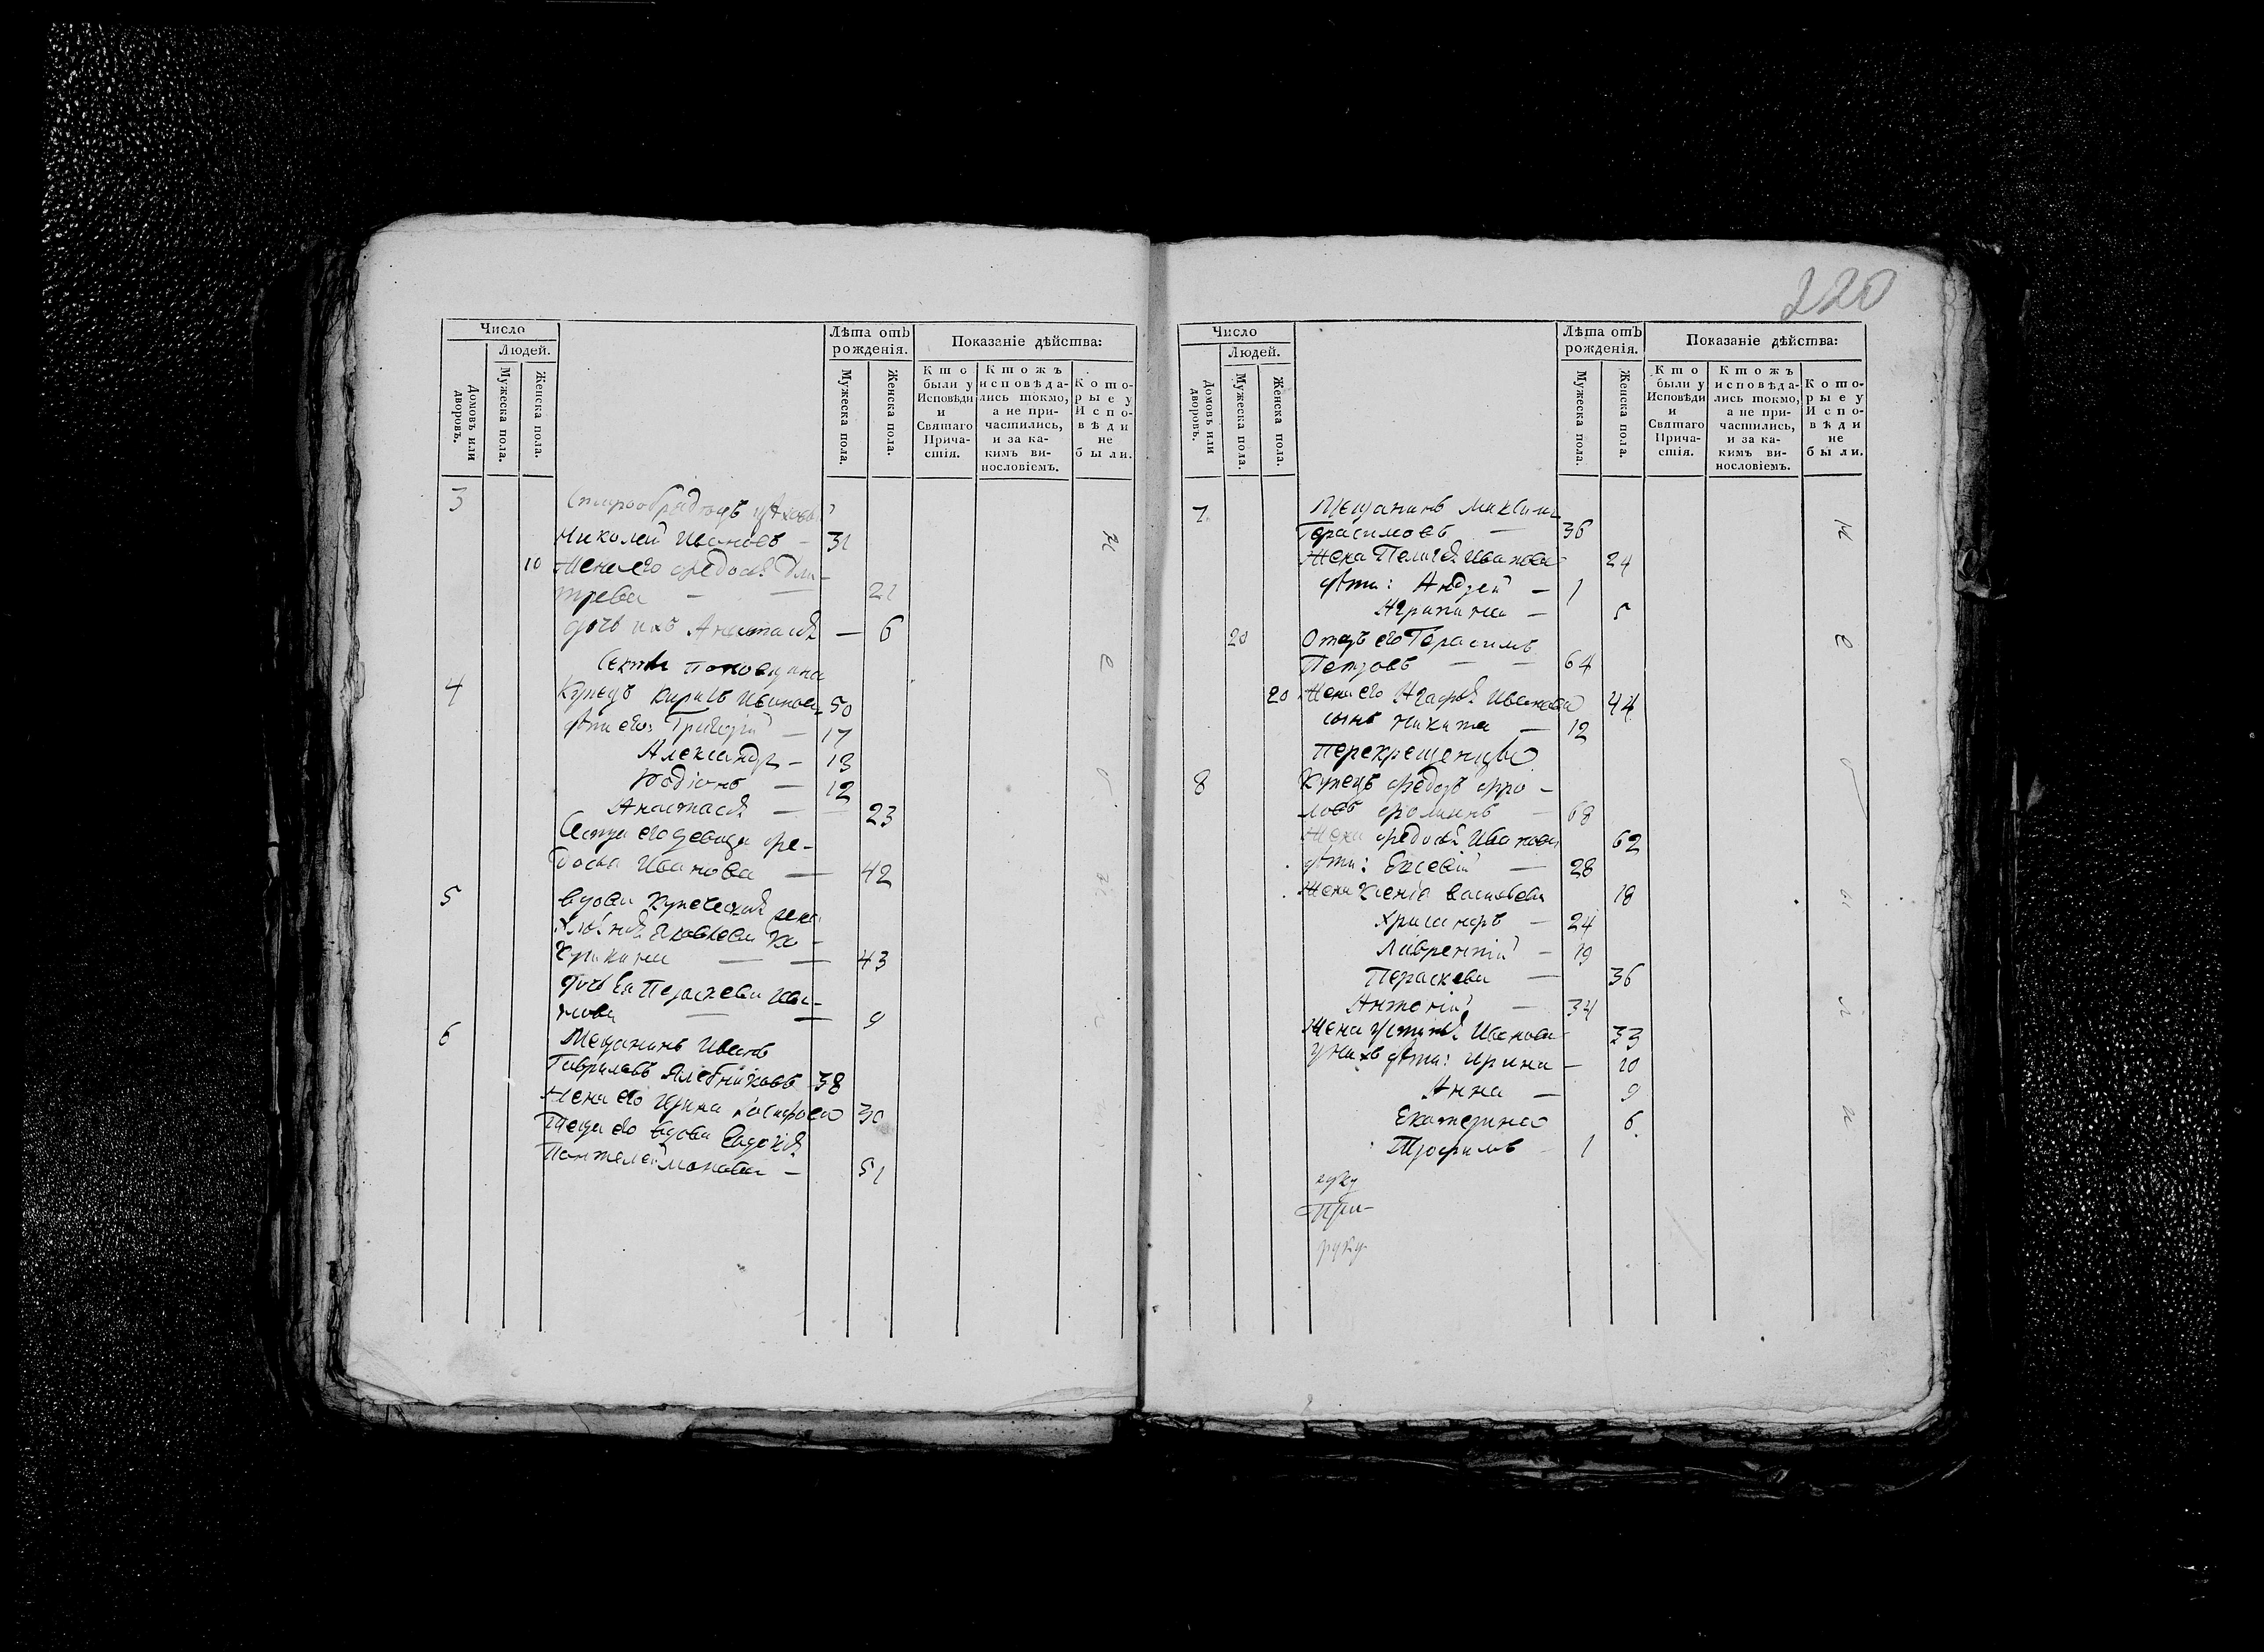 220
Число
Людей.
Домовъ или дворовъ.
Мужеска пола.
Женска пола.
Лѣта отъ рожденія.
Мужеска пола.
Женска пола.
Показаніе дѣйства:
Кто были у Исповѣди и Святаго Причастія.
Ктожъ исповѣдались токмо, а не причастились, и за какимъ винословіемъ.
Которые у Исповѣди не были.
3
Николай Ивановъ - 31
10 Жена его Федосья Дми-
трева - 21
дочь ихъ Анастасія — 6
Секты поповщина
4 Купецъ Кирилъ Ивановъ 50
дѣти его: Григорій — 17
Александръ - 13
Родіонъ — 12
Анастасія — 23
Сестра его девица Фе-
досья Иванова — 42
5 вдова купеческая
Яковлева Ко-
43
дочь ея Пераскева Ива-
нова — — 9
6 Мещанинъ Иванъ
Гавриловъ 38
Жена его Ирина 30
Теща его вдова Евдокія
Пантелеймонова — 51
Число
Людей.
Домовъ или дворовъ.
Мужеска пола.
Женска пола.
Лѣта отъ рожденія.
Мужеска пола.
Женска пола.
Показаніе дѣйства:
Кто были у Исповѣди и Святаго Причастія.
Ктожъ исповѣдались токмо, а не причастились, и за какимъ винословіемъ.
Которые у Исповѣди не были.
7 Мещанинъ Максимъ
Герасимовъ — 36
Жена Пелагея Иванова 24
дѣти: Андрей — 1
Агрипина — 5
20 Отецъ его Герасимъ
Петровъ — — 64
20 Жена его Агафья Иванова 44
сынъ Никита — 12
Перекрещенцы
8 Купецъ Федоръ Фро-
ловъ — 68
Жена Федосья Иванова 62
дѣти: Евсевій — 28
Жена Ксенія Васильева 18
24
Лаврентій — 19
Пераскева — 36
Антоній — 34
Жена Устинья Иванова 33
у нихъ дѣти: Ирина — 10
Анна — 9
Екатерина 6
Трофимъ 1
руку
При-
руку